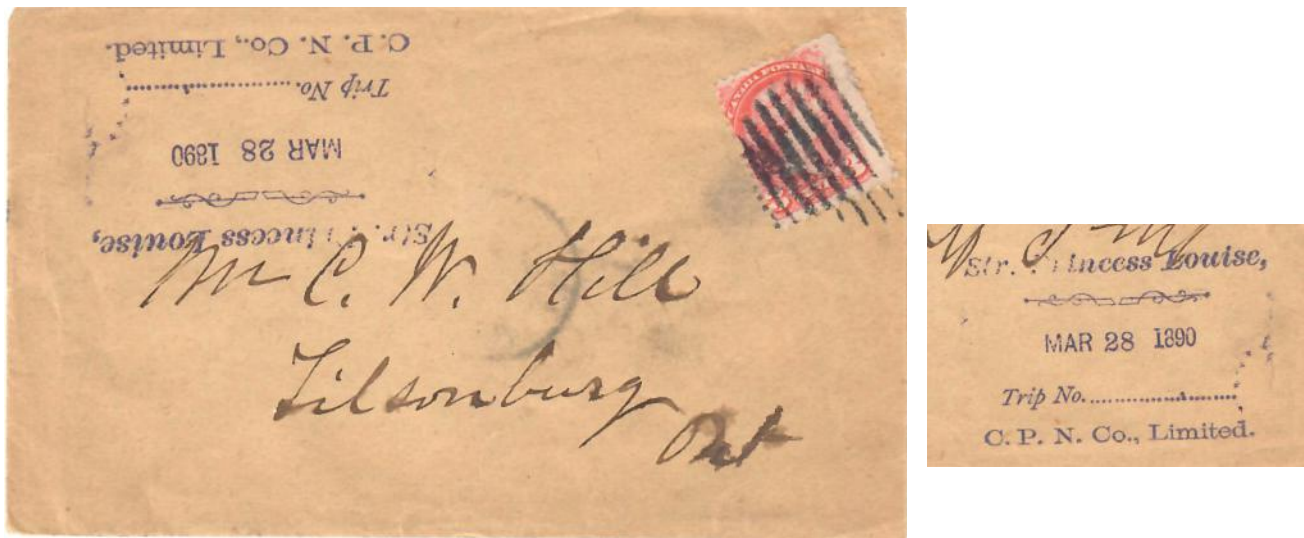 C. P. N. Co., Limited.
Trip No.
MAR 28 1890
Str. Princess Louise,
CANADA POSTAGE
Mr C. W. Hill
Tilsonburg
Ont
Str. Princess Louise,
MAR 28 1890
Trip No.
C. P. N. Co., Limited.